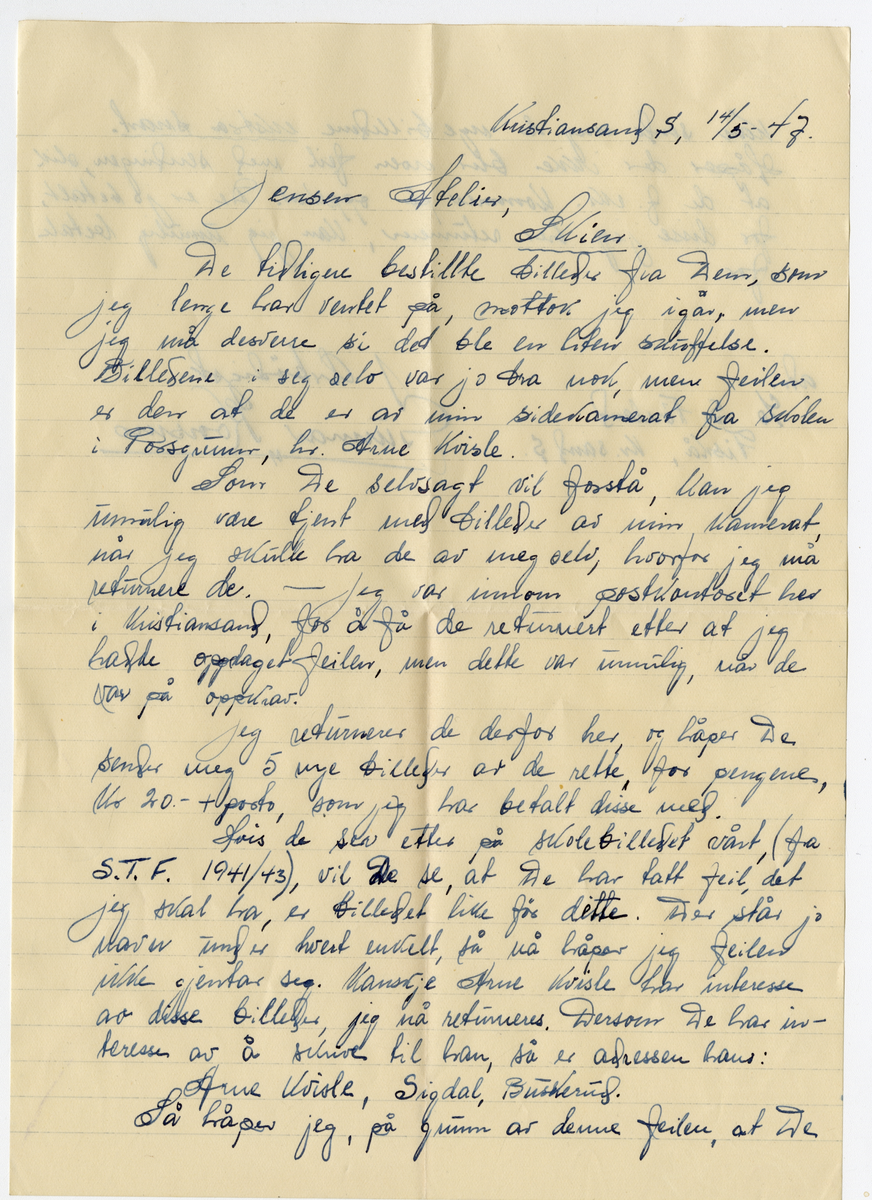 Kristiansand S, 14/5-47.
Jensen Atelier,
Skien.
De tidligere bestillte billeder fra Dem, som
jeg lenge har ventet på, mottok jeg igår, men
jeg må desverre si det ble en liten skuffelse.
Billedene i seg selv var jo bra nok, men feilen
er den at de er av min sidekamerat fra skolen
i Porsgrunn, hr. Arne Kvisle.
Som De selvsagt vil forstå, kan jeg
umulig være tjent med billeder av min kamerat,
når jeg skulle ha de av meg selv, hvorfor jeg må
returnere de. — Jeg var innom postkontoret her
i Kristiansand, for å få de returnert etter at jeg
hadde oppdaget feilen, men dette var umulig, når de
var på oppkrav.
Jeg returnerer de derfor her, og håper De
sender meg 5 nye billeder av de rette, for pengene,
Kr 20.- + porto, som jeg har betalt disse med.
Hvis de ser etter på skolebilledet vårt, (fra
S.T.F. 1941/43), vil De se, at De har tatt feil, det
jeg skal ha, er billedet like før dette. Der står jo
navn under hvert enkelt, så nå håper jeg feilen
ikke gjentar seg. Kanskje Arne Kvisle har interesse
av disse billeder, jeg nå returneres. Dersom De har in-
teresse av å skrive til han, så er adressen hans:
Arne Kvisle, Sigdal, Buskerud.
Så håper jeg, på grunn av denne feilen, at De